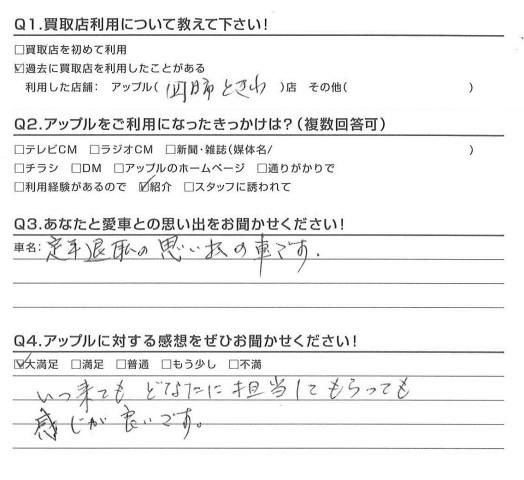 Q1.買取店利用について教えて下さい!
□買取店を初めて利用
☑過去に買取店を利用したことがある
利用した店舗: アップル( 四日市ときわ )店 その他( )
Q2.アップルをご利用になったきっかけは?(複数回答可)
□テレビCM □ラジオCM □新聞・雑誌(媒体名/ )
□チラシ □DM □アップルのホームページ □通りがかりで
□利用経験があるので ☑紹介 □スタッフに誘われて
Q3.あなたと愛車との思い出をお聞かせください!
車名: 定年退職の思い出の車です.
Q4.アップルに対する感想をぜひお聞かせください!
☑大満足 □満足 □普通 □もう少し □不満
いつ来てもどなたに担当してもらっても
感じが良いです。